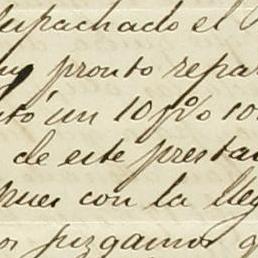 despachado el
pronto repar
tó un 10 p% 10
de este presta
pues con la lleg
os juzgamos q